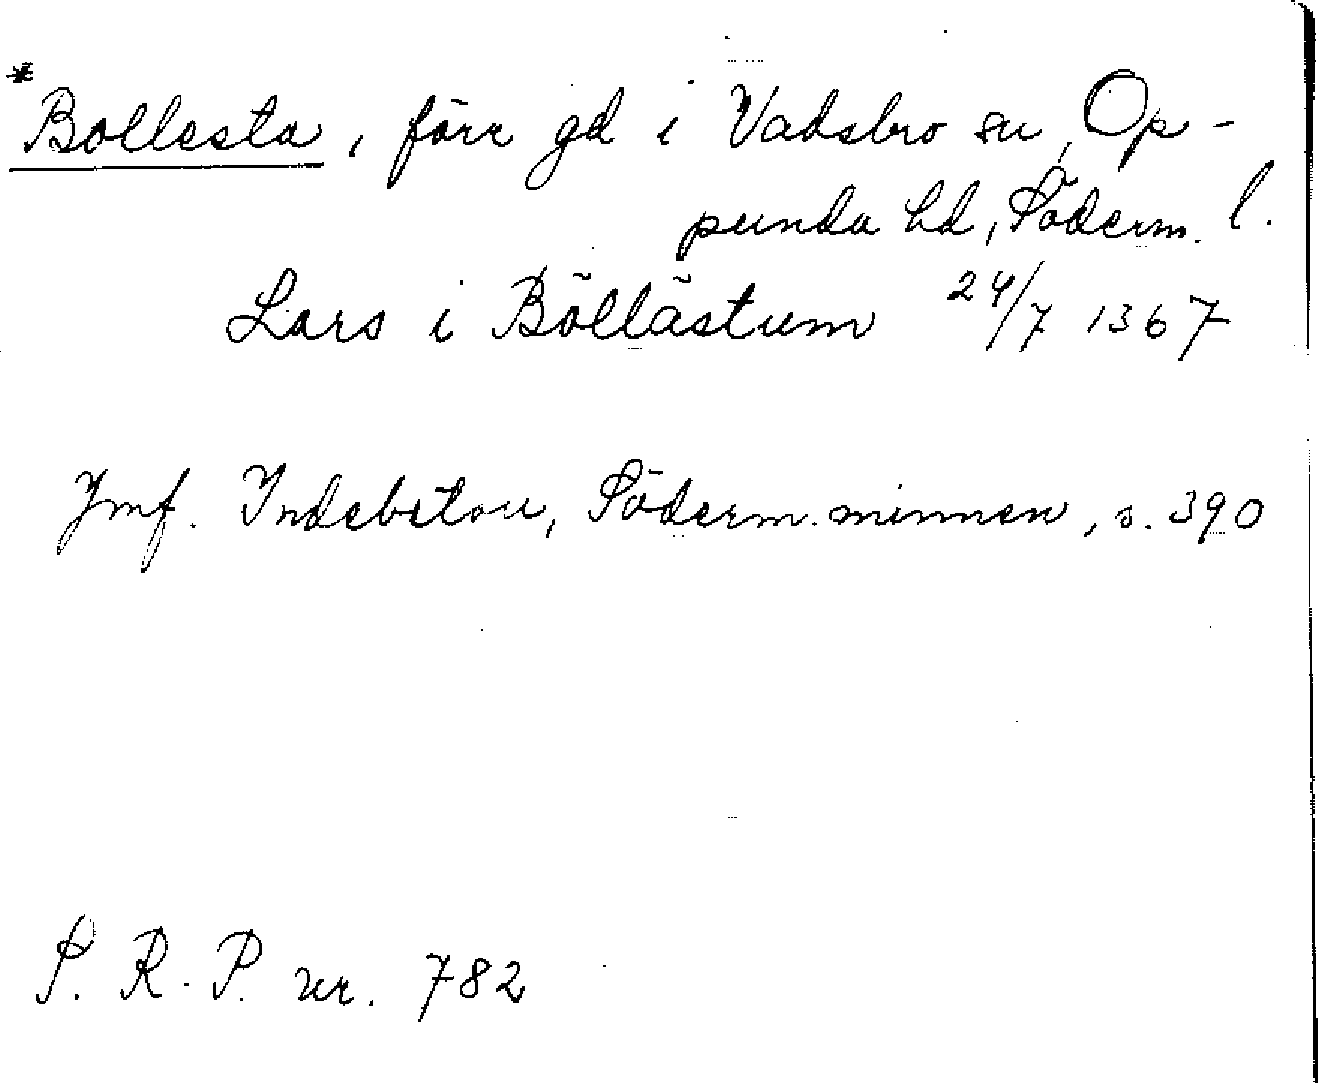 *Bollesta, förr gd i Vadsbro sn, Op-
punda hd, Söderm. l.
Lars i Böllästum 24/7 1367
Jmf. Indebetou, Söderm. minnen, s. 390
S. R. P. nr. 782